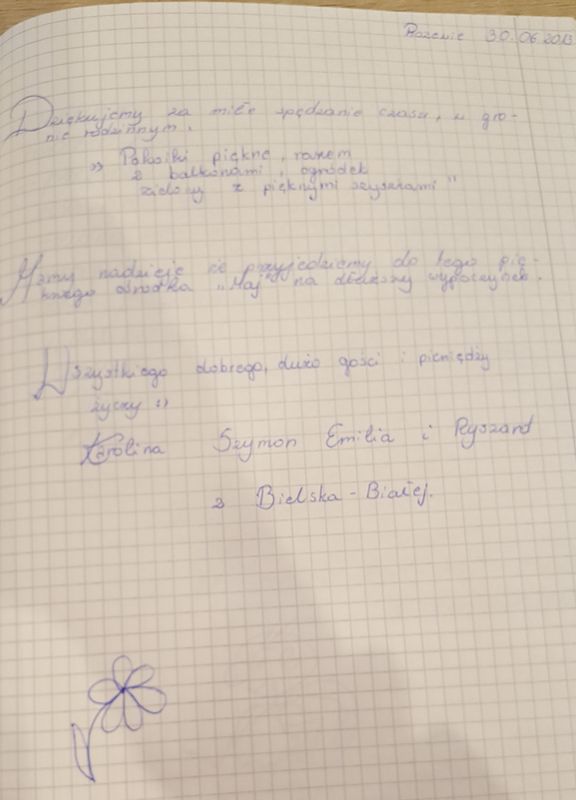 Rozewie 30.06.2013
Dziękujemy za miłe spędzanie czasu, w gro-
nie rodzinnym.
„ Pokoiki piękne, razem
z balkonami, ogródek
zielony z pięknymi szyszkami "
Mamy nadzieję że przyjedziemy do tego pię-
knego ośrodka „Maj" na dłuższy wypoczynek.
Wszystkiego dobrego, dużo gości i pieniędzy
życzy :)
Karolina Szymon Emilia i Ryszard
z Bielska-Białej.